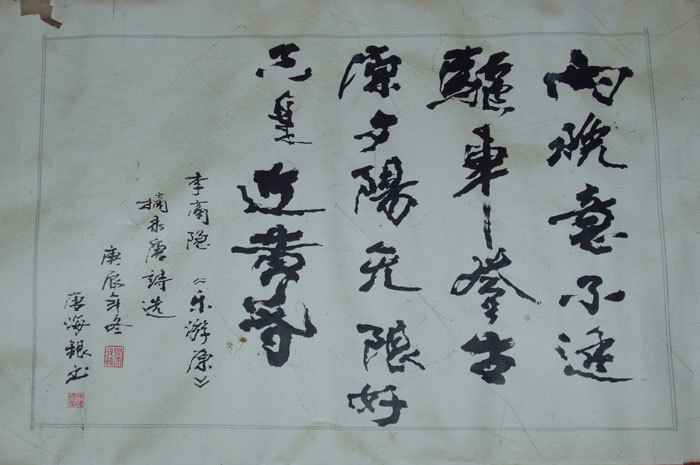 向晚意不適
驅車登古
原夕陽无限好
只是近黄昏
李商隐《乐游原》
摘录唐詩选
庚辰年冬
唐海银书